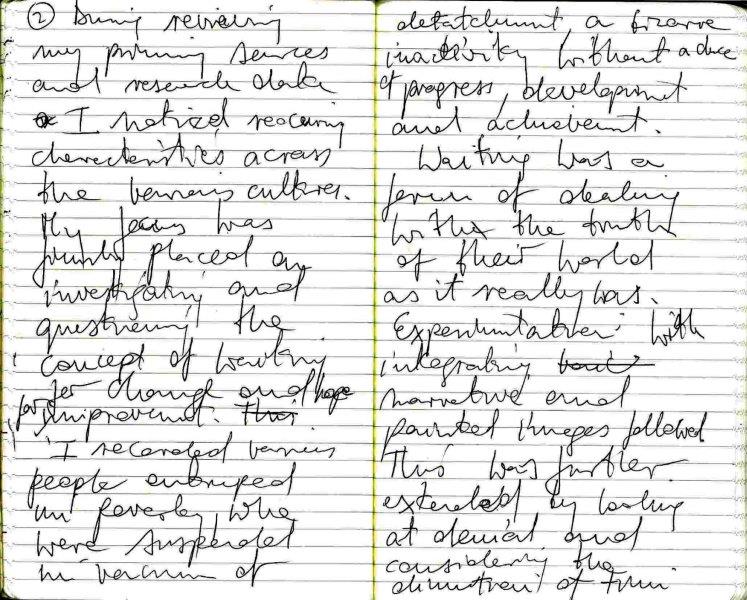 ② During reviewing
my primary sources
and research data
I noticed reoccuring
characteristics across
the various cultures.
My focus was
placed on
investigating and
questioning the
concept of waiting
for change and hope
for improvement. This
I recorded various
people entraped
in poverty who
were suspended
in vacum of
detatchment, a bizarre
inactivity without a
of progress, development
and achievement.
Waiting was a
form of dealing
with the truth
of their world
as it really was.
Experimentation with
integrating
narrative and
painted images followed
This was further
extended by looking
at denial and
considering the
dimension of time